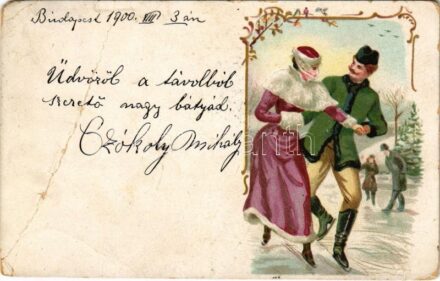 Budapest 1900. VIII 3án
Üdvözöl a távolból
szerető nagy bátyád.
Czókoly Mihály